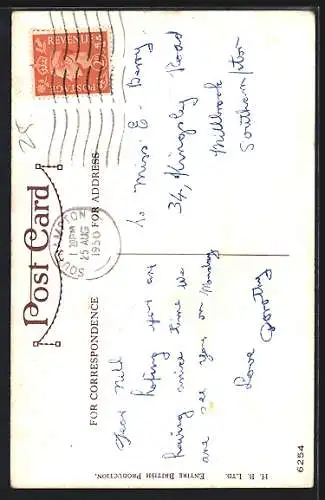 Post Card
FOR CORRESPONDENCE
FOR ADDRESS
REVENUE
POSTAGE
SOUTHAMPTON
1 20PM
25 AUG
1950
25
Dear Nell
hoping you are
having a nice time We
are see you on Monday
Love
Dorothy
To Miss. E. Berry.
34, Kingsley Road
Millbrook
Southampton
H. B. LTD. ENTIRE BRITISH PRODUCTION.
6254